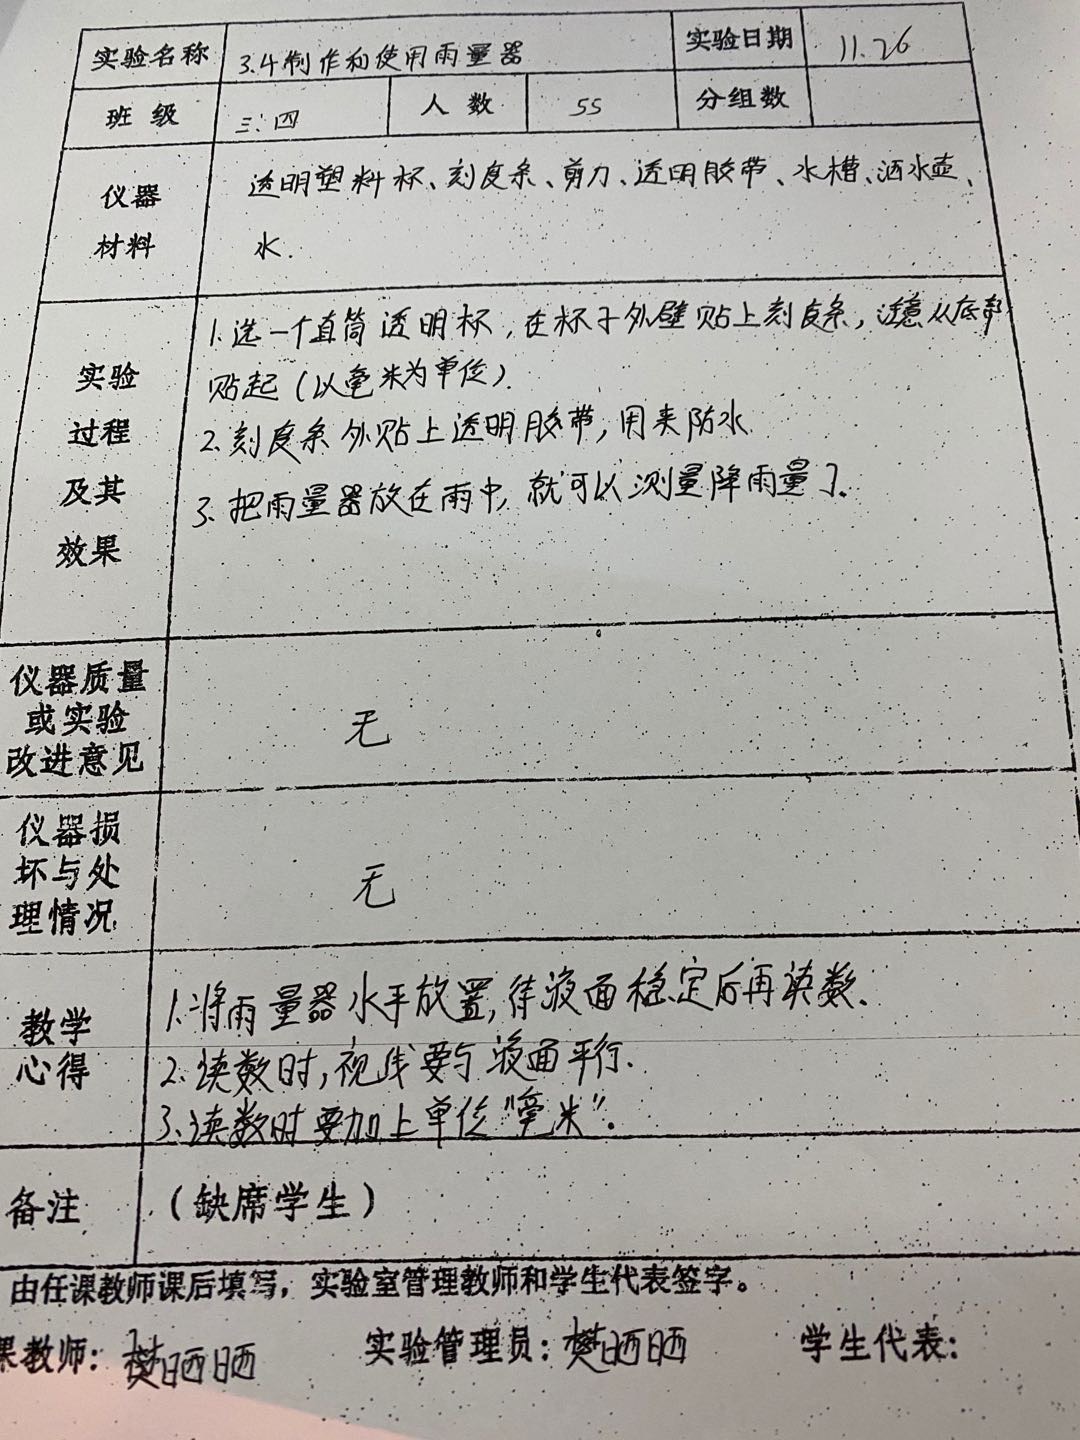 实验名称 3.4制作和使用雨量器 实验日期 11.26
班级 三.四 人数 55 分组数
仪器材料 透明塑料杯、刻度条、剪刀、透明胶带、水槽、洒水壶、
水.
实验过程及其效果 1.选一个直筒透明杯,在杯子外壁贴上刻度条,注意从底部
贴起(以毫米为单位).
2.刻度条外贴上透明胶带,用来防水.
3.把雨量器放在雨中,就可以测量降雨量了.
仪器质量或实验改进意见 无
仪器损坏与处理情况 无
教学心得 1.将雨量器水平放置,待液面稳定后再读数.
2.读数时,视线要与液面平行.
3.读数时要加上单位"毫米".
备注 (缺席学生)
由任课教师课后填写,实验室管理教师和学生代表签字。
课教师:樊晒晒 实验管理员:樊晒晒 学生代表: